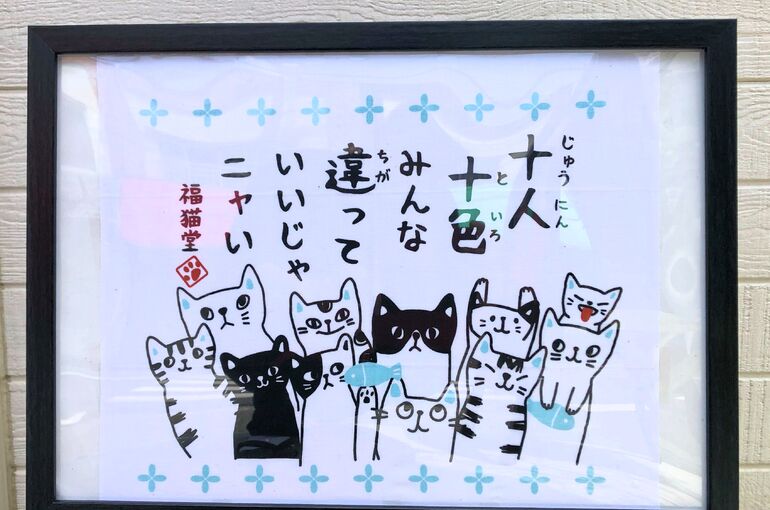 十人
じゅうにん
十色
といろ
みんな
違って
ちが
いいじゃ
ニャい
福猫堂